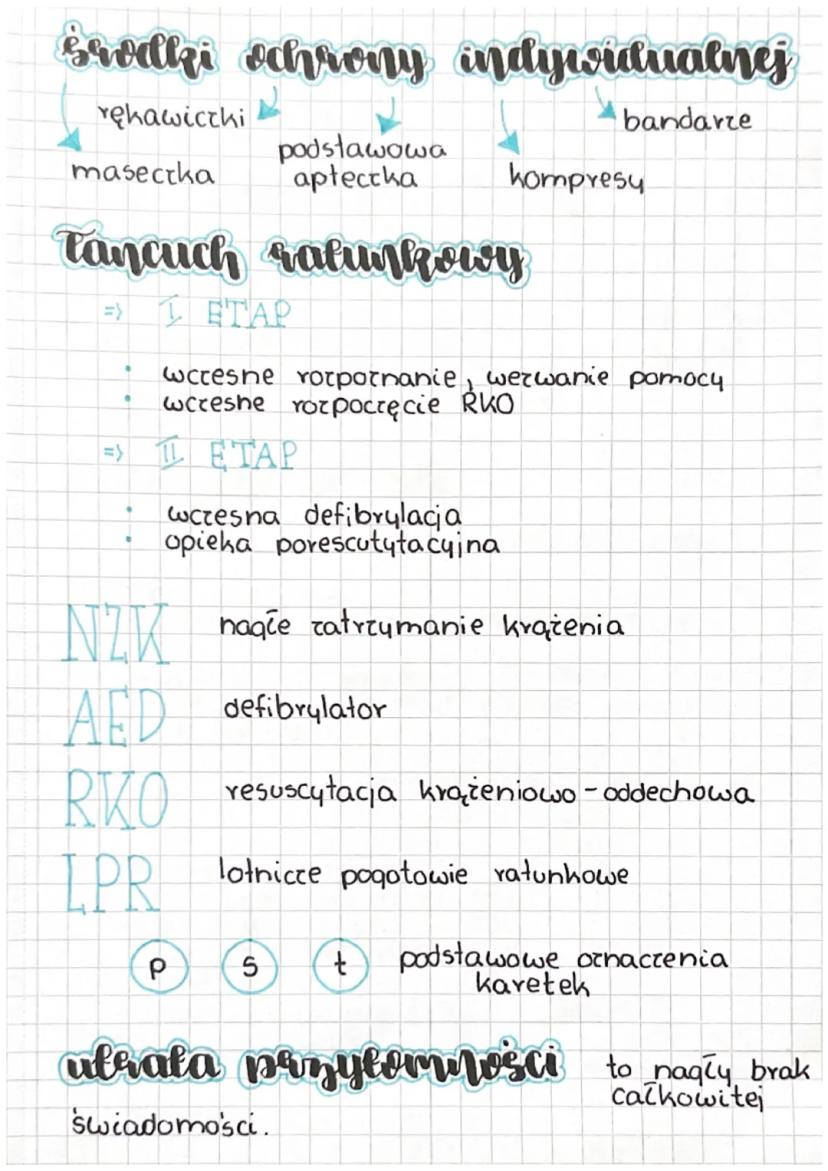 środki ochrony indywidualnej
rękawiczki
bandarze
podstawowa
apteczka
maseczka
kompresy
łańcuch ratunkowy
=> I ETAP
• wczesne rozpoznanie, wezwanie pomocy
• wczesne rozpoczęcie RKO
=> II ETAP
• wczesna defibrylacja
• opieka porescutytacyjna
NZK nagłe zatrzymanie krążenia
AED defibrylator
RKO resuscytacja krążeniowo-oddechowa
LPR lotnicze pogotowie ratunkowe
p s t podstawowe oznaczenia
karetek
utrata przytomności to nagły brak
całkowitej
świadomości.